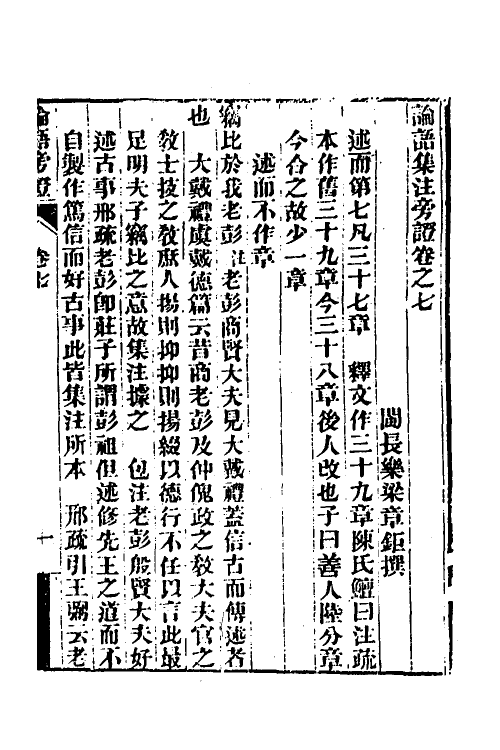 論語集注旁證卷之七
閩長樂梁章鉅撰
述而第七凡三十七章 釋文作三十九章陳氏鱣曰注疏
本作舊三十九章今三十八章後人改也子曰善人陸分章
今合之故少一章
述而不作章
竊比於我老彭注老彭商賢大夫見大戴禮蓋信古而傳述者
也 大戴禮虞戴德篇云昔商老彭及仲傀政之教大夫官之
教士技之教庶人揚則抑抑則揚綴以德行不任以言此最
足明夫子竊比之意故集注據之 包注老彭殷賢大夫好
述古事邢疏老彭卽莊子所謂彭祖但述修先王之道而不
自製作篤信而好古事此皆集注所本 邢疏引王弼云老
論語旁證 卷七 一